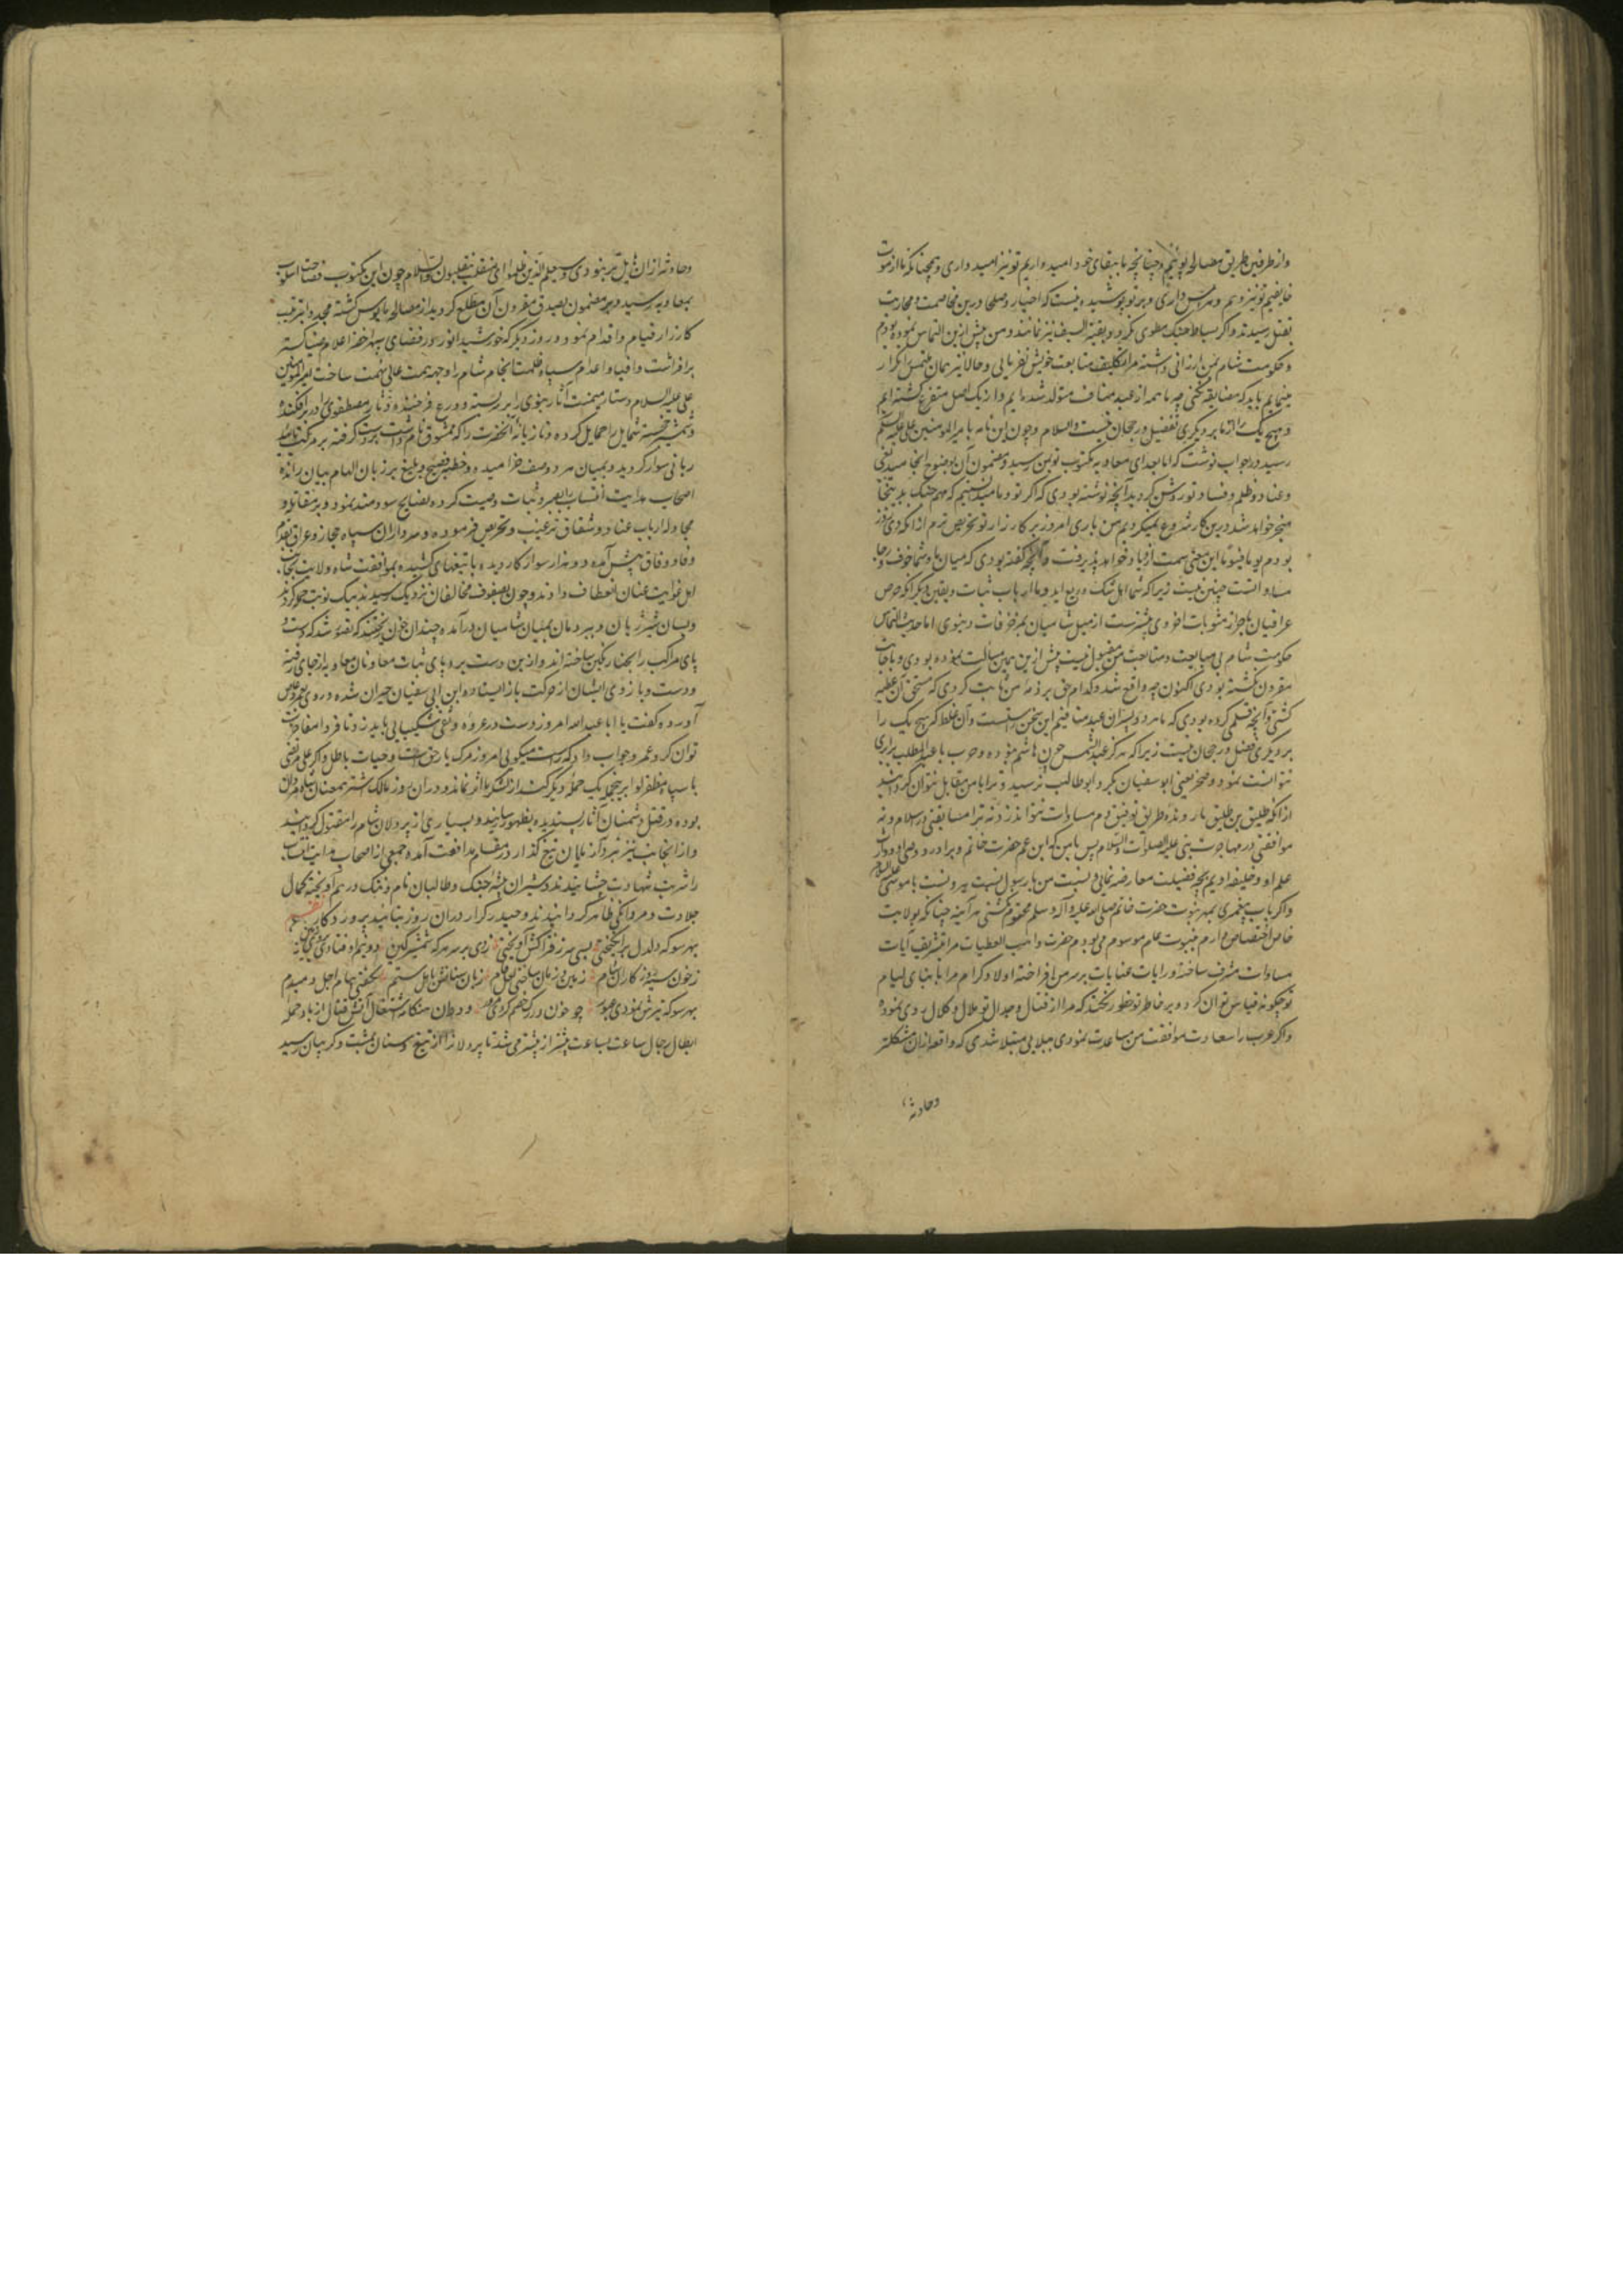 واز طرفین طریق مصالحه پوئیم و چنانچه ما ببقای خود امیدواریم تو نیز امید داری و همچنانکه ما از موت
خایفیم تو نیز و هم و هراس داری و بر تو پوشیده نیست که اخیار و صلحا درین مخاصمت و محاربت
بقتل رسیدند و اگر بساط جنک مطوی نکردد بقیة السیف نیز نمانند و من پیش ازین التماس نموده بودم
و حکومت شام بمن ارزانی داشته مرا تکلیف متابعت خویش نفرمایی و حالا نیز همان ملتمس را تکرار
مینمایم باید که مضایقه نکنی چه ما همه از عبد مناف متولد شده ایم و از یک اصل متفرع کشته ایم
و هیچ یک را از ما بر دیکری تفضیل و رجحان نیست والسلام و چون این نامه بامیرالمومنین علی علیه السلم
رسید در جواب نوشت که اما بعد ای معاویه مکتوب تو بمن رسید و مضمون آن بوضوح انجامید بغی
و عناد و ظلم و فساد تو روشن کردید آنچه نوشته بودی که اکر تو و ما میدانستیم که مهم جنک بدینجا
منجر خواهد شد درین کار شروع نمیکردیم من باری امروز بر کارزار تو حریص ترم از انکه دی روز
بودم یوما فیوما این معنی سمت ازدیاد خواهد پذیرفت و آنچه کفته بودی که میان ما و شما خوف و رجا
مساوانست چنین نیست زیرا که شما اهل شک و ریب اید و ما ارباب ثبات و یقین و دیکر انکه حرص
عراقیان باحراز مثوبات اخروی بیشترست از میل شامیان بمزخرفات دنیوی اما حدیث التماس
حکومت شام بی مبایعت و متابعت من مقبول نیست پیش ازین همین مسالت نموده بودی و باجابت
مقرون نکشته بود اکنون چه واقع شد و کدام حق بر ذمه من ثابت کردی که مستحق آن عطیه
کشتی و آنچه قلمی کرده بودی که ما هر دو پسران عبد منافیم این سخن راستست و آن غلط که هیچ یک را
بر دیکری فضل و رجحان نیست زیرا که هرکز عبدالشمس چون هاشم نبوده و حرب با عبدالمطلب برابری
نتوانست نمود و صخر یعنی ابوسفیان بکرد ابوطالب نرسید و ترا با من مقابل نتوان کردانید
از انکه طلیق بن طلیق بار ونده طریق توفیق دم مساوات نتواند زد نه ترا مسابقتی در اسلام و نه
موافقتی در مهاجرت بنی علیه الصلوات والسلام پس با من که ابن عم حضرت خاتم و برادر و وصی و وارث
علم او و خلیفه اویم بچه فضیلت معارضه نمایی و نسبت من با رسول نسبت هرونست با موسی علیه السلم
واکر باب پیغمبری بمهر نبوت حضرت خاتم صلی الله علیه و آله و سلم مختوم نکشتی هر آینه چنانکه بولایت
خاص اختصاص دارم بنبوت عام موسوم می بودم حضرت واهب العطیات مرا بتشریف آیات
مساوات مشرف ساخته و رایات عنایات بر سر من افراخته اولاد کرام مرا با بنای لیام
تو چکونه قیاس توان کرد و بر خاطر تو خطور نکند که مرا از قتال و جدال تو ملال و کلال روی نموده
واکر عرب را سعادت موافقت من مساعدت نمودی ببلایی مبتلا شدی که واقعه ازان مشکلتر
وحادثه
وحادثه ازان هایل تر نبودی و سیعلم الذین ظلموا ای منقلب ینقلبون والسلام چون این مکتوب فصاحت اسلوب
بمعاویه رسید و بر مضمون بصدق مقرون آن مطلع کردید از مصالحه مایوس کشته مجددا بترتیب
کارزار قیام و اقدام نمود و روز دیکر که خورشید انور در فضای سپهر اخضر اعلام
برافراشت و افنا و اعدام سپاه ظلمت انجام شام را وجهه همت عالی نهمت ساخت امیرالمومنین
علی علیه السلام دستار میمنت آثار نبوی را بر سر بسته و درع فرخنده دثار مصطفوی را در بر افکنده
و شمشیر خجسته شمایل را حمایل کرده و تازیانه آنحضرت را که ممشوق نام داشت بدست کرفته بر مرکب تایید
ربانی سوار کردید و بمیان هر دو صف خرامیده و خطبه فصیح و بلیغ بر زبان الهام بیان رانده
اصحاب هدایت انتساب را بصبر و ثبات وصیت کرد و نصایح سودمند نمود و بر مقاتله و
مجادله ارباب عناد و شقاق ترغیب و تحریض فرموده و سرداران سپاه حجاز و عراق بقدم
وفا و وفاق پیش آمده و هزار سوار کار دیده با تیغهای کشیده بموافقت شاه ولایت بجانب
اهل غوایت عنان انعطاف دادند و چون بصفوف مخالفان نزدیک رسیدند بیک نوبت حمله کردند
و بسان شیر ژیان و ببر دمان بمیان شامیان درآمده چندان خون ریختند که تصور شد که دست و
پای مراکب را بحنا رنکین ساخته اند و ازین دست برد پای ثبات معاونان معاویه از جای رفته
و دست و بازوی ایشان از حرکت باز ایستاده ابن ابی سفیان حیران شده و روی بعمرو عاص
آورده کفت یا ابا عبدالله امروز دست در عروه وثقی شکیبایی باید زد تا فردا مفاخرت
توان کرد عمرو جواب داد که راست میکویی امروز مرک با حق است و حیات باطل و اکر علی مرتضی
با سپاه مظفر لوا برین جمله یک حمله دیکر کند از لشکر ما اثر نماند و دران روز مالک اشتر همعنان شاه مردان
بوده در قتل دشمنان آثار پسندیده بظهور رسانید و بسیاری از پردلان شام را مقتول کردانید
و از انجانب نیز نبردآزمایان تیغ کذار در مقام مدافعت آمده جمعی از اصحاب هدایت انتساب
را شربت شهادت چشانیدند و شیران بیشه جنک و طالبان نام و ننک در هم آویخته کمال
جلادت و مردانکی ظاهر کردانیدند و حیدر کرار دران روز بتایید پروردکار
بهر سو که دلدل برانکیختی بسی سر ز فتراکش آویختی زدی بر سر هر که شمشیر کین دو نیم اوفتادی بروی زمین
ز خون سیه روز کاران شام زمین و زمان ساختی لعل فام زبان سنانش باهل ستم بکفتی پیام اجل دمبدم
بهر سو که ترشیش نمودی عبور چو خون در رک خصم کردی مرور و دران هنکام اشتعال آتش قتال از باد حمله
ابطال رجال ساعت بساعت بیشتر از پیشتر می شد تا پردلان را از تیغ و سنان بمشت و کریبان رسید